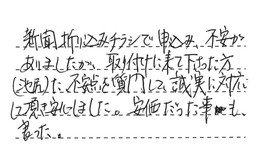 新聞折り込みチラシで申込み、不安が
ありましたが、取付けに来て下さった方
(池尻)に不安点を質問して、誠実に対応
して頂き安心しました。安価だった事も、
良かった。